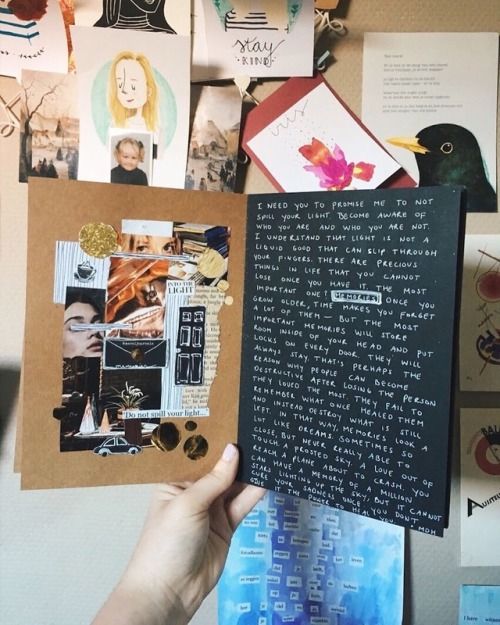 stay
KIND
iris
INTO THE
LIGHT
Do not spill your light...
I NEED YOU TO PROMISE ME TO NOT
SPILL YOUR LIGHT. BECOME AWARE OF
WHO YOU ARE AND WHO YOU ARE NOT.
I UNDERSTAND THAT LIGHT IS NOT A
LIQUID GOOD THAT CAN SLIP THROUGH
YOUR FINGERS. THERE ARE PRECIOUS
THINGS IN LIFE THAT YOU CANNOT
LOSE ONCE YOU HAVE IT. THE MOST
IMPORTANT ONE? MEMORIES. ONCE YOU
GROW OLDER, TIME MAKES YOU FORGET
A LOT OF THEM — BUT THE MOST
IMPORTANT MEMORIES WILL STORE
ROOM INSIDE OF YOUR HEAD AND PUT
LOCKS ON EVERY DOOR. THEY WILL
ALWAYS STAY. THAT'S PERHAPS THE
REASON WHY PEOPLE CAN BECOME
DESTRUCTIVE AFTER LOSING THE PERSON
THEY LOVED THE MOST. THEY FAIL TO
REMEMBER WHAT ONCE HEALED THEM
AND INSTEAD DESTROY WHAT IS STILL
LEFT. IN THAT WAY, MEMORIES LOOK A
LOT LIKE DREAMS. SOMETIMES SO
CLOSE, BUT NEVER REALLY ABLE TO
TOUCH A FROSTED SKY. A LOVE OUT OF
REACH. A PLANE ABOUT TO CRASH. YOU
CAN HAVE A MEMORY OF A MILLION
STARS LIGHTING UP THE SKY, BUT IT CANNOT
CURE YOUR SADNESS ONCE YOU DON'T
GIVE IT THE POWER TO HEAL YOU.
I have